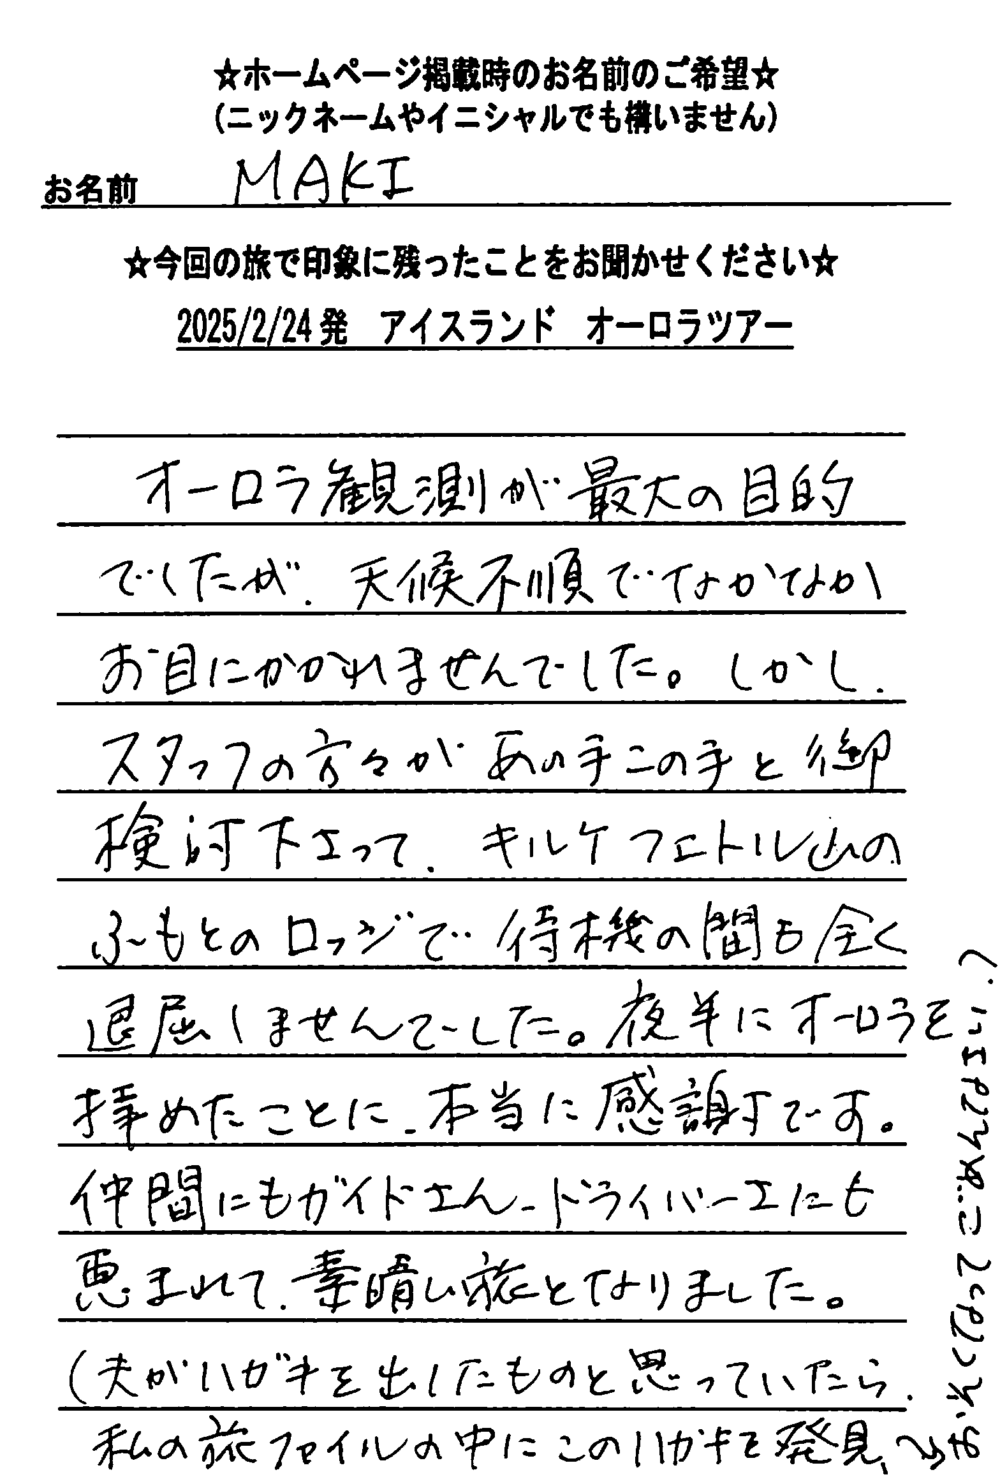 ☆ホームページ掲載時のお名前のご希望☆
（ニックネームやイニシャルでも構いません）
お名前 MAKI
☆今回の旅で印象に残ったことをお聞かせください☆
2025/2/24発 アイスランド オーロラツアー
オーロラ観測が最大の目的
でしたが、天候不順でなかなか
お目にかかれませんでした。しかし、
スタッフの方々があの手この手と御
検討下さって、キルケフェトル山の
ふもとのロッジで待機の間も全く
退屈しませんでした。夜半にオーロラを
拝めたことに、本当に感謝です。
仲間にもガイドさん、ドライバーさんにも
恵まれて、素晴しい旅となりました。
（夫がハガキを出したものと思っていたら、
私の旅ファイルの中にこのハガキを発見、
おそくなってごめんなさい。）